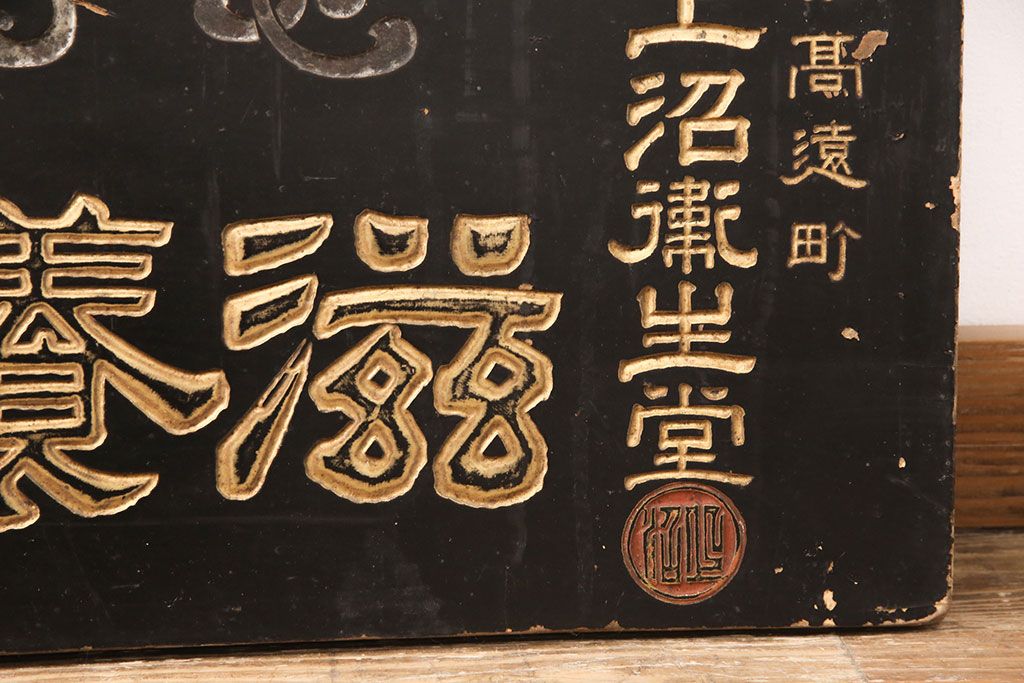 高遠町
上沼衛生堂
滋養